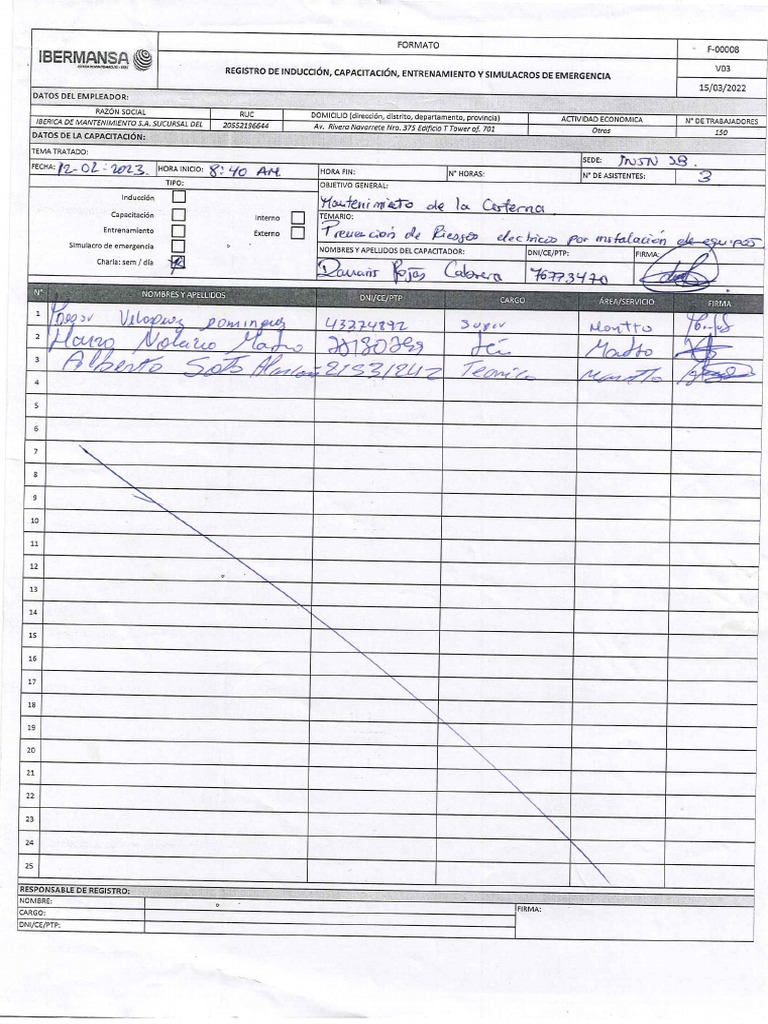 IBERMANSA
FORMATO
F-00008
REGISTRO DE INDUCCIÓN, CAPACITACIÓN, ENTRENAMIENTO Y SIMULACROS DE EMERGENCIA
V03
15/03/2022
DATOS DEL EMPLEADOR:
RAZÓN SOCIAL RUC DOMICILIO (dirección, distrito, departamento, provincia) ACTIVIDAD ECONOMICA N° DE TRABAJADORES
IBERICA DE MANTENIMIENTO S.A. SUCURSAL DEL 20552196644 Av. Rivera Navarrete Nro. 375 Edificio T Tower of. 701 Otros 150
DATOS DE LA CAPACITACIÓN:
TEMA TRATADO: SEDE: INSN SB.
FECHA: 12-02-2023. HORA INICIO: 8:40 AM. HORA FIN: N° HORAS: N° DE ASISTENTES: 3
TIPO:
Inducción
Capacitación
Entrenamiento
Simulacro de emergencia
Charla: sem / día
Interno
Externo
OBJETIVO GENERAL:
Mantenimiento de la Cisterna.
TEMARIO:
Prevención de Riesgos electricos por instalación de equipos
NOMBRES Y APELLIDOS DEL CAPACITADOR: DNI/CE/PTP: FIRMA:
Damaris Rojas Cabrera 76773470
N° NOMBRES Y APELLIDOS DNI/CE/PTP CARGO ÁREA/SERVICIO FIRMA
1 Velasquez Dominguez 43274892 Super Mantto
2 Notario Mantto
3 Alberto Soto 21531242 Tecnico Mantto
4
5
6
7
8
9
10
11
12
13
14
15
16
17
18
19
20
21
22
23
24
25
RESPONSABLE DE REGISTRO:
NOMBRE: FIRMA:
CARGO:
DNI/CE/PTP: